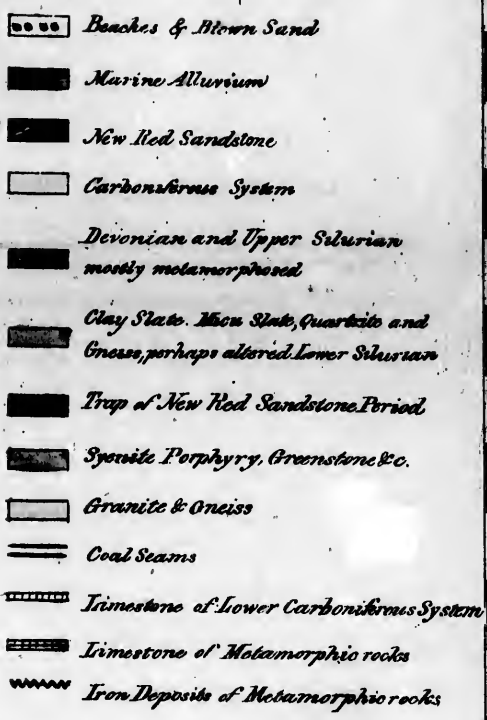 Beaches & Blown Sand
Marine Alluvium
New Red Sandstone
Carboniferous System
Devonian and Upper Silurian
mostly metamorphosed
Clay Slate. Mica Slate, Quartzite and
Gneiss, perhaps altered Lower Silurian
Trap of New Red Sandstone Period
Syenite Porphyry, Greenstone &c.
Granite & Gneiss
Coal Seams
Limestone of Lower Carboniferous System
Limestone of Metamorphic rocks
Iron Deposits of Metamorphic rocks